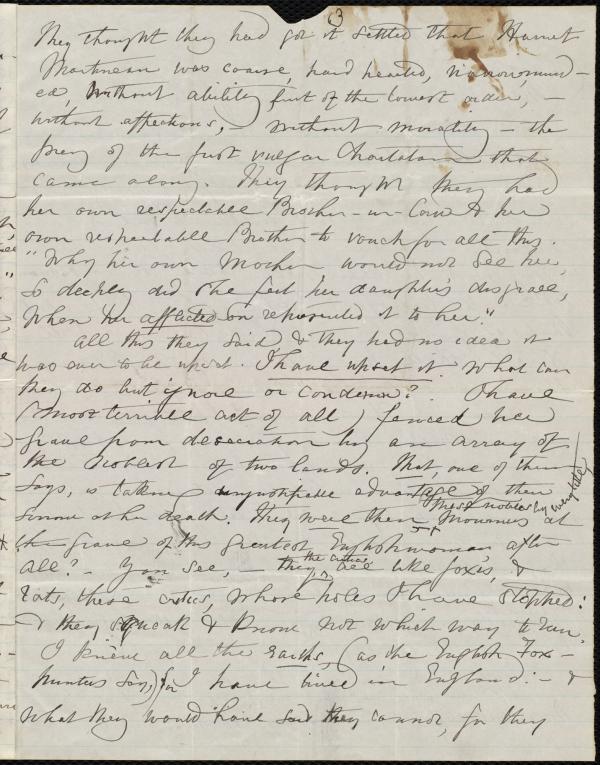 3
They thought they had got it settled that Harriet
Martineau was coarse, hard hearted, narrow mind-
ed, without ability first of the lowest order, –
without affections, – without morality – the
prey of the first vulgar Charlatan that
came along. They thought they had
her own respectable Brother-in-Law & her
own respectable Brother to vouch for all this.
"Why her own Mother would not see her,
so deeply did she feel her daughter's disgrace,
when her afflicted son represented it to her."
All this they said & they had no idea it
was ever to be upset. I have upset it. What can
they do but ignore or condemn? I have
(most terrible act of all) fenced her
grave from desecration by an array of
the noblest of two lands. That, one of them
says, is taking unjustifiable advantage of their
sorrow at her death. They were then, these nobles by very title, mourners at
the grave of this greatest Englishwoman, after
all? You see, – they, the critics, are like foxes, &
rats, these critics, whose holes I have stopped:
& they squeak & know not which way to run.
I knew all the earths, (as the English Fox-
hunters say,) for I have lived in England: – &
what they would have said they cannot, for they